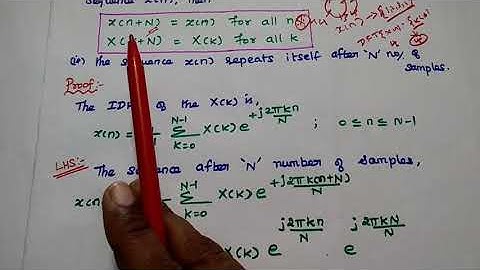 Sequence x(n), then
x(n+N) = x(n) for all n
X(k+N) = X(k) for all k
(ie) the sequence x(n) repeats itself after 'N' no. of samples.
Proof:-
The IDFT of the X(k) is,
x(n) = Σ_{k=0}^{N-1} X(k) e^{+j2πkn/N} ; 0 ≤ n ≤ N-1
LHS:- The sequence after 'N' number of samples,
Σ_{k=0}^{N-1} X(k) e^{+j2πk(n+N)/N}
X(k) e^{j2πkn/N} e^{j2πkN/N}